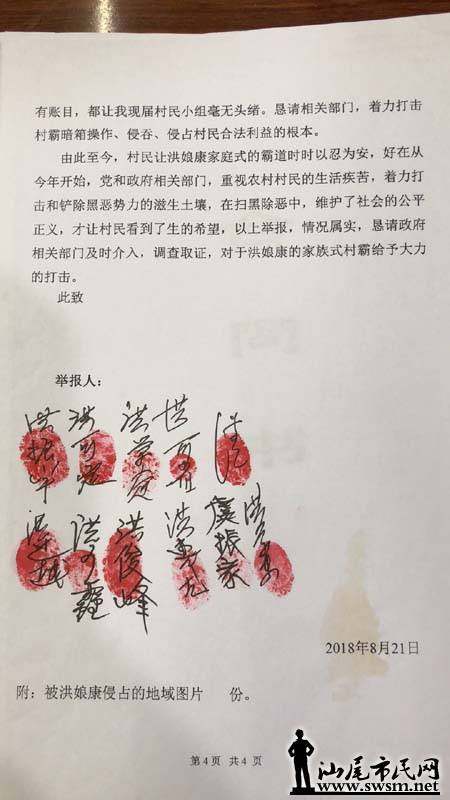 有账目，都让我现届村民小组毫无头绪。恳请相关部门，着力打击
村霸暗箱操作、侵吞、侵占村民合法利益的根本。
由此至今，村民让洪娘康家庭式的霸道时时以忍为安，好在从
今年开始，党和政府相关部门，重视农村村民的生活疾苦，着力打
击和铲除黑恶势力的滋生土壤，在扫黑除恶中，维护了社会的公平
正义，才让村民看到了生的希望，以上举报，情况属实，恳请政府
相关部门及时介入，调查取证，对于洪娘康的家族式村霸给予大力
的打击。
此致
举报人：
洪俊峰
虞振家
2018年8月21日
附：被洪娘康侵占的地域图片 份。
第4页 共4页
汕尾市民网
www.swsm.net